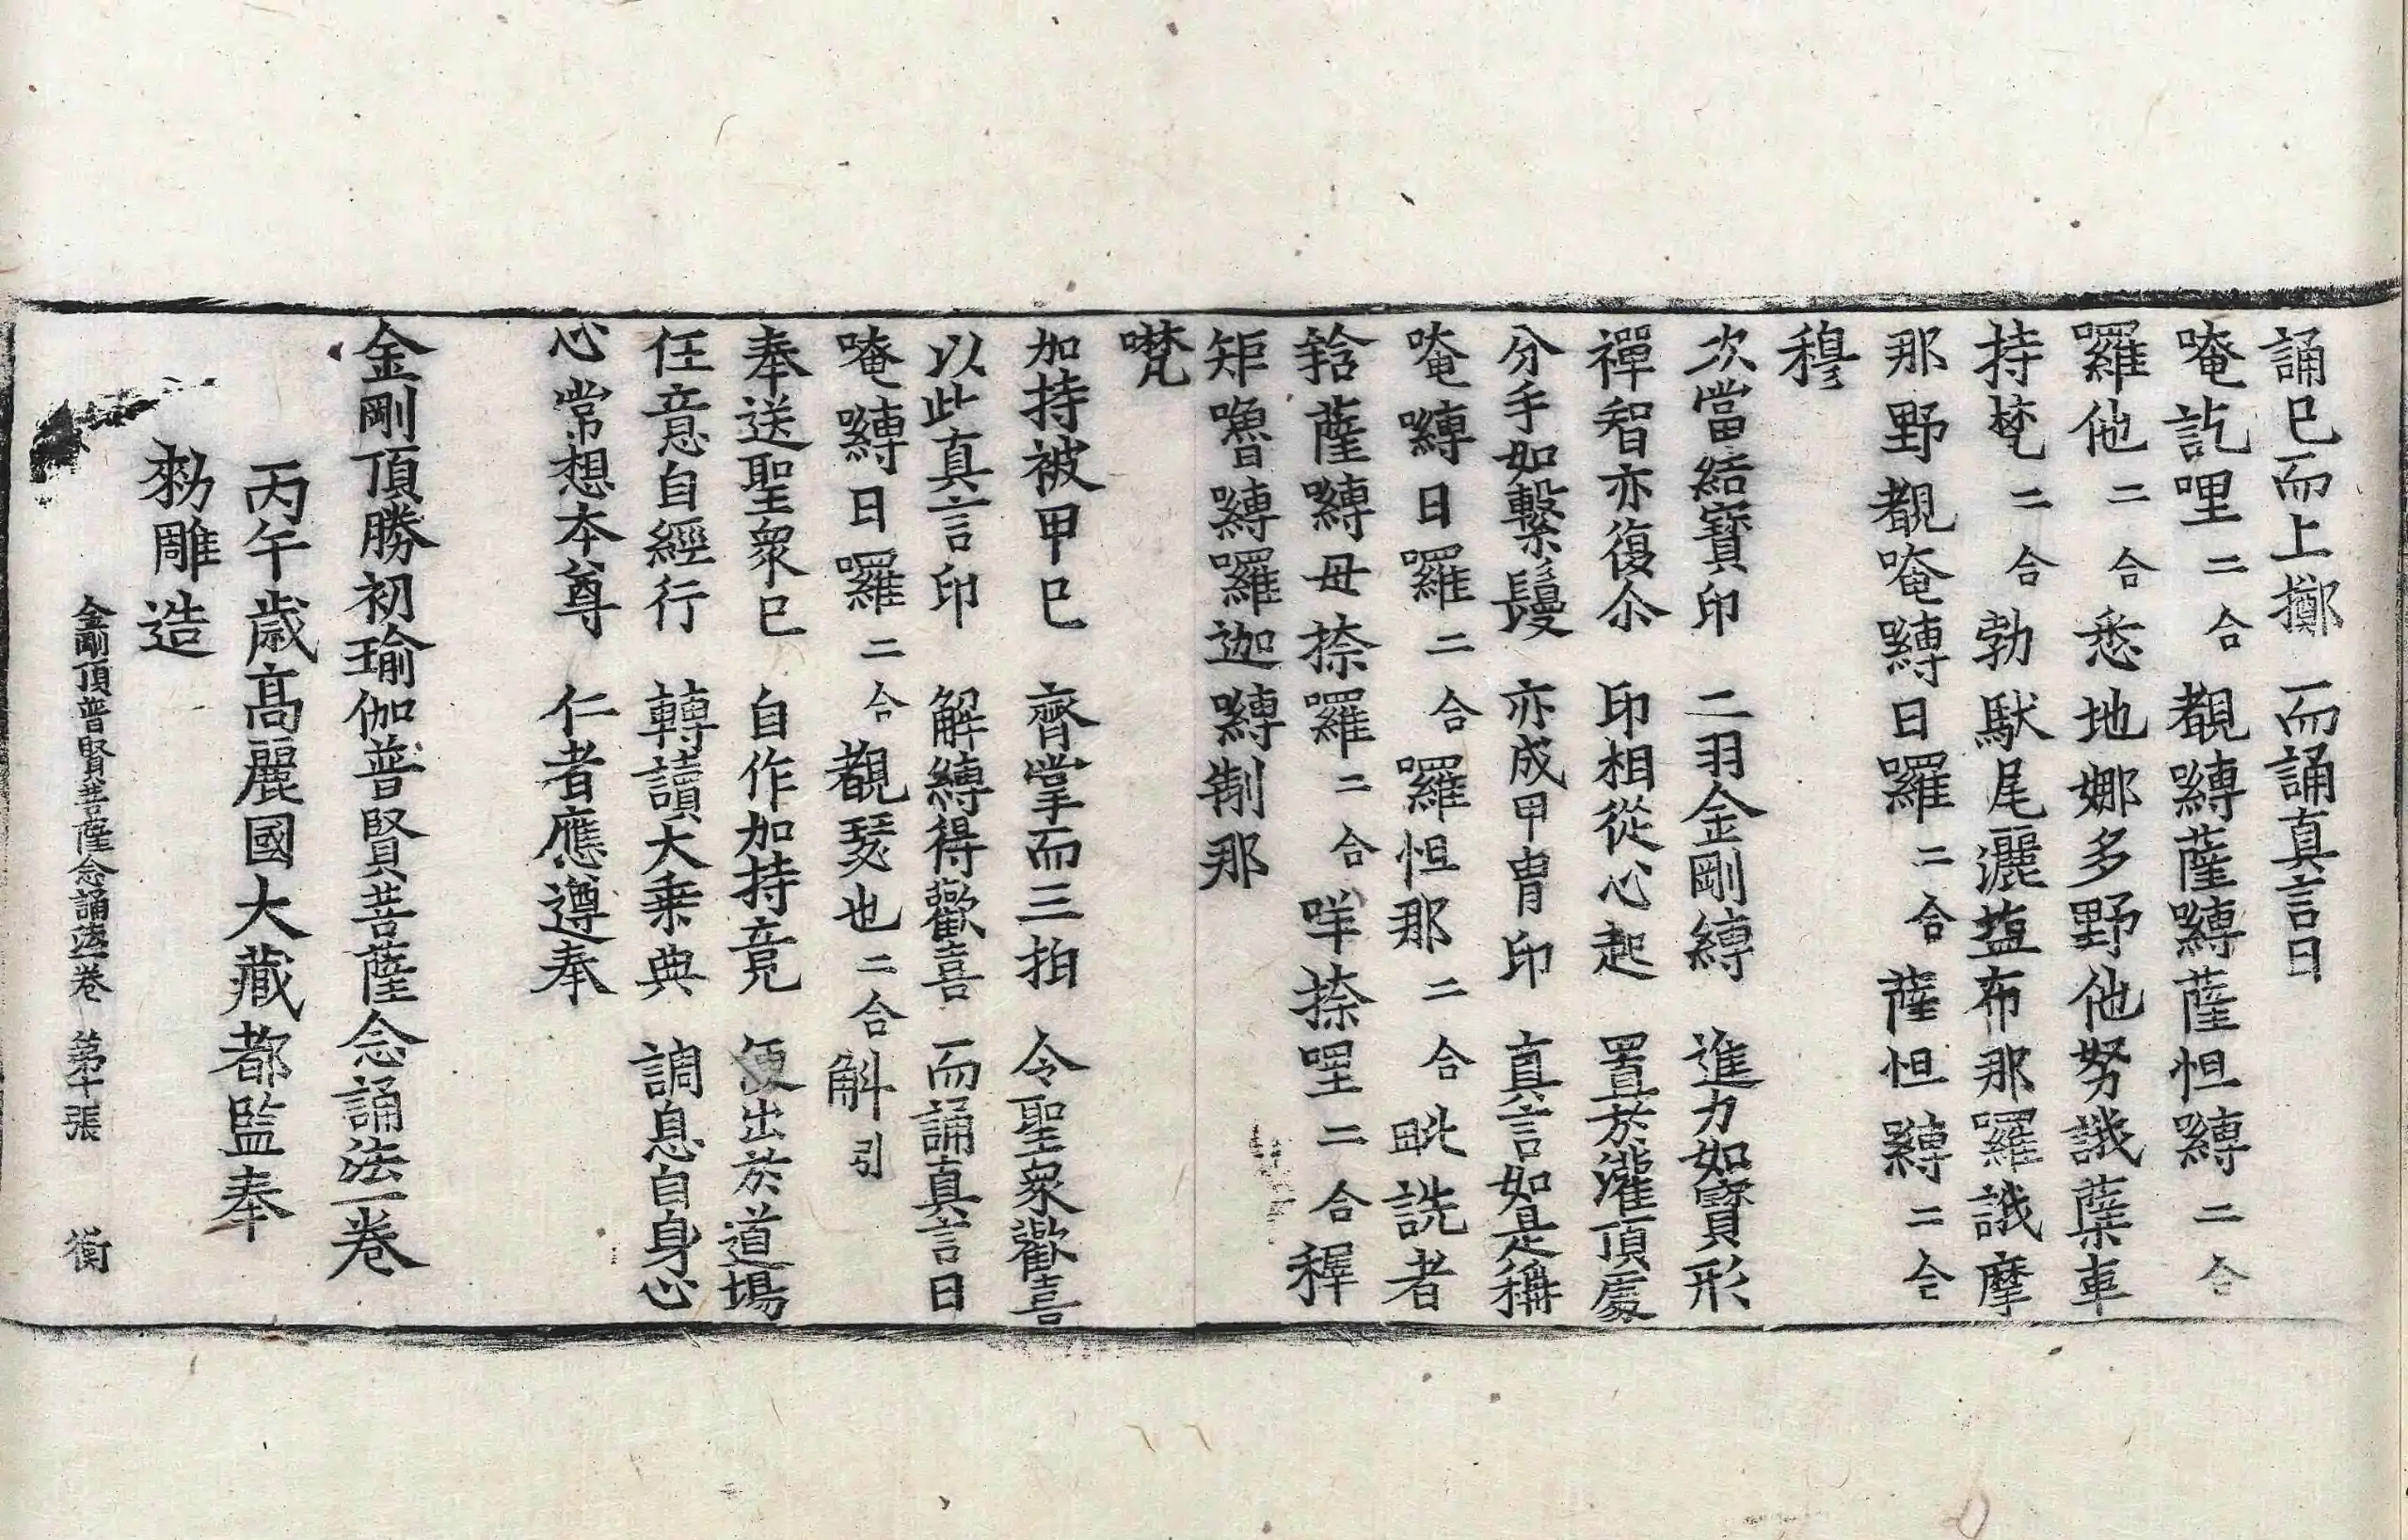 誦已而上擲 而誦真言曰
唵訖哩二合覩嚩薩嚩薩怛嚩二合
囉他二合悉地娜多野他努誐蘖車
持梵二合勃馱尾灑鹽布那羅誐摩
那野覩唵嚩日囉二合薩怛嚩二合
穆
次當結寶印 二羽金剛縛 進力如寶形
禪智亦復尒 印相從心起 置於灌頂處
分手如繫鬘 亦成甲冑印 真言如是稱
唵嚩日囉二合囉怛那二合毗詵者
𤚥薩嚩母捺囉二合咩捺哩二合稺
矩嚕嚩囉迦嚩制那
㘕
加持被甲已 齊掌而三拍 令聖衆歡喜
以此真言印 解縛得歡喜 而誦真言曰
唵嚩日囉二合覩瑟也二合斛引
奉送聖衆已 自作加持竟 便出於道場
任意自經行 轉讀大乗典 調息自身心
心常想本尊 仁者應遵奉
金剛頂勝初瑜伽普賢菩薩念誦法一卷
丙午歲高麗國大藏都監奉
勑雕造
金剛頂普賢菩薩念誦法一卷 第十張 衡